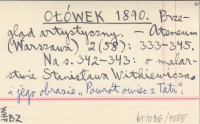 OŁÓWEK 1890. Prze-
gląd artystyczny. — Ateneum
(Warszawa) 2(58): 333-345.
Na s. 342-343: o malar-
stwie Stanisława Witkiewicza
i jego obrazie „Powrót owiec z Tatr".
BZ